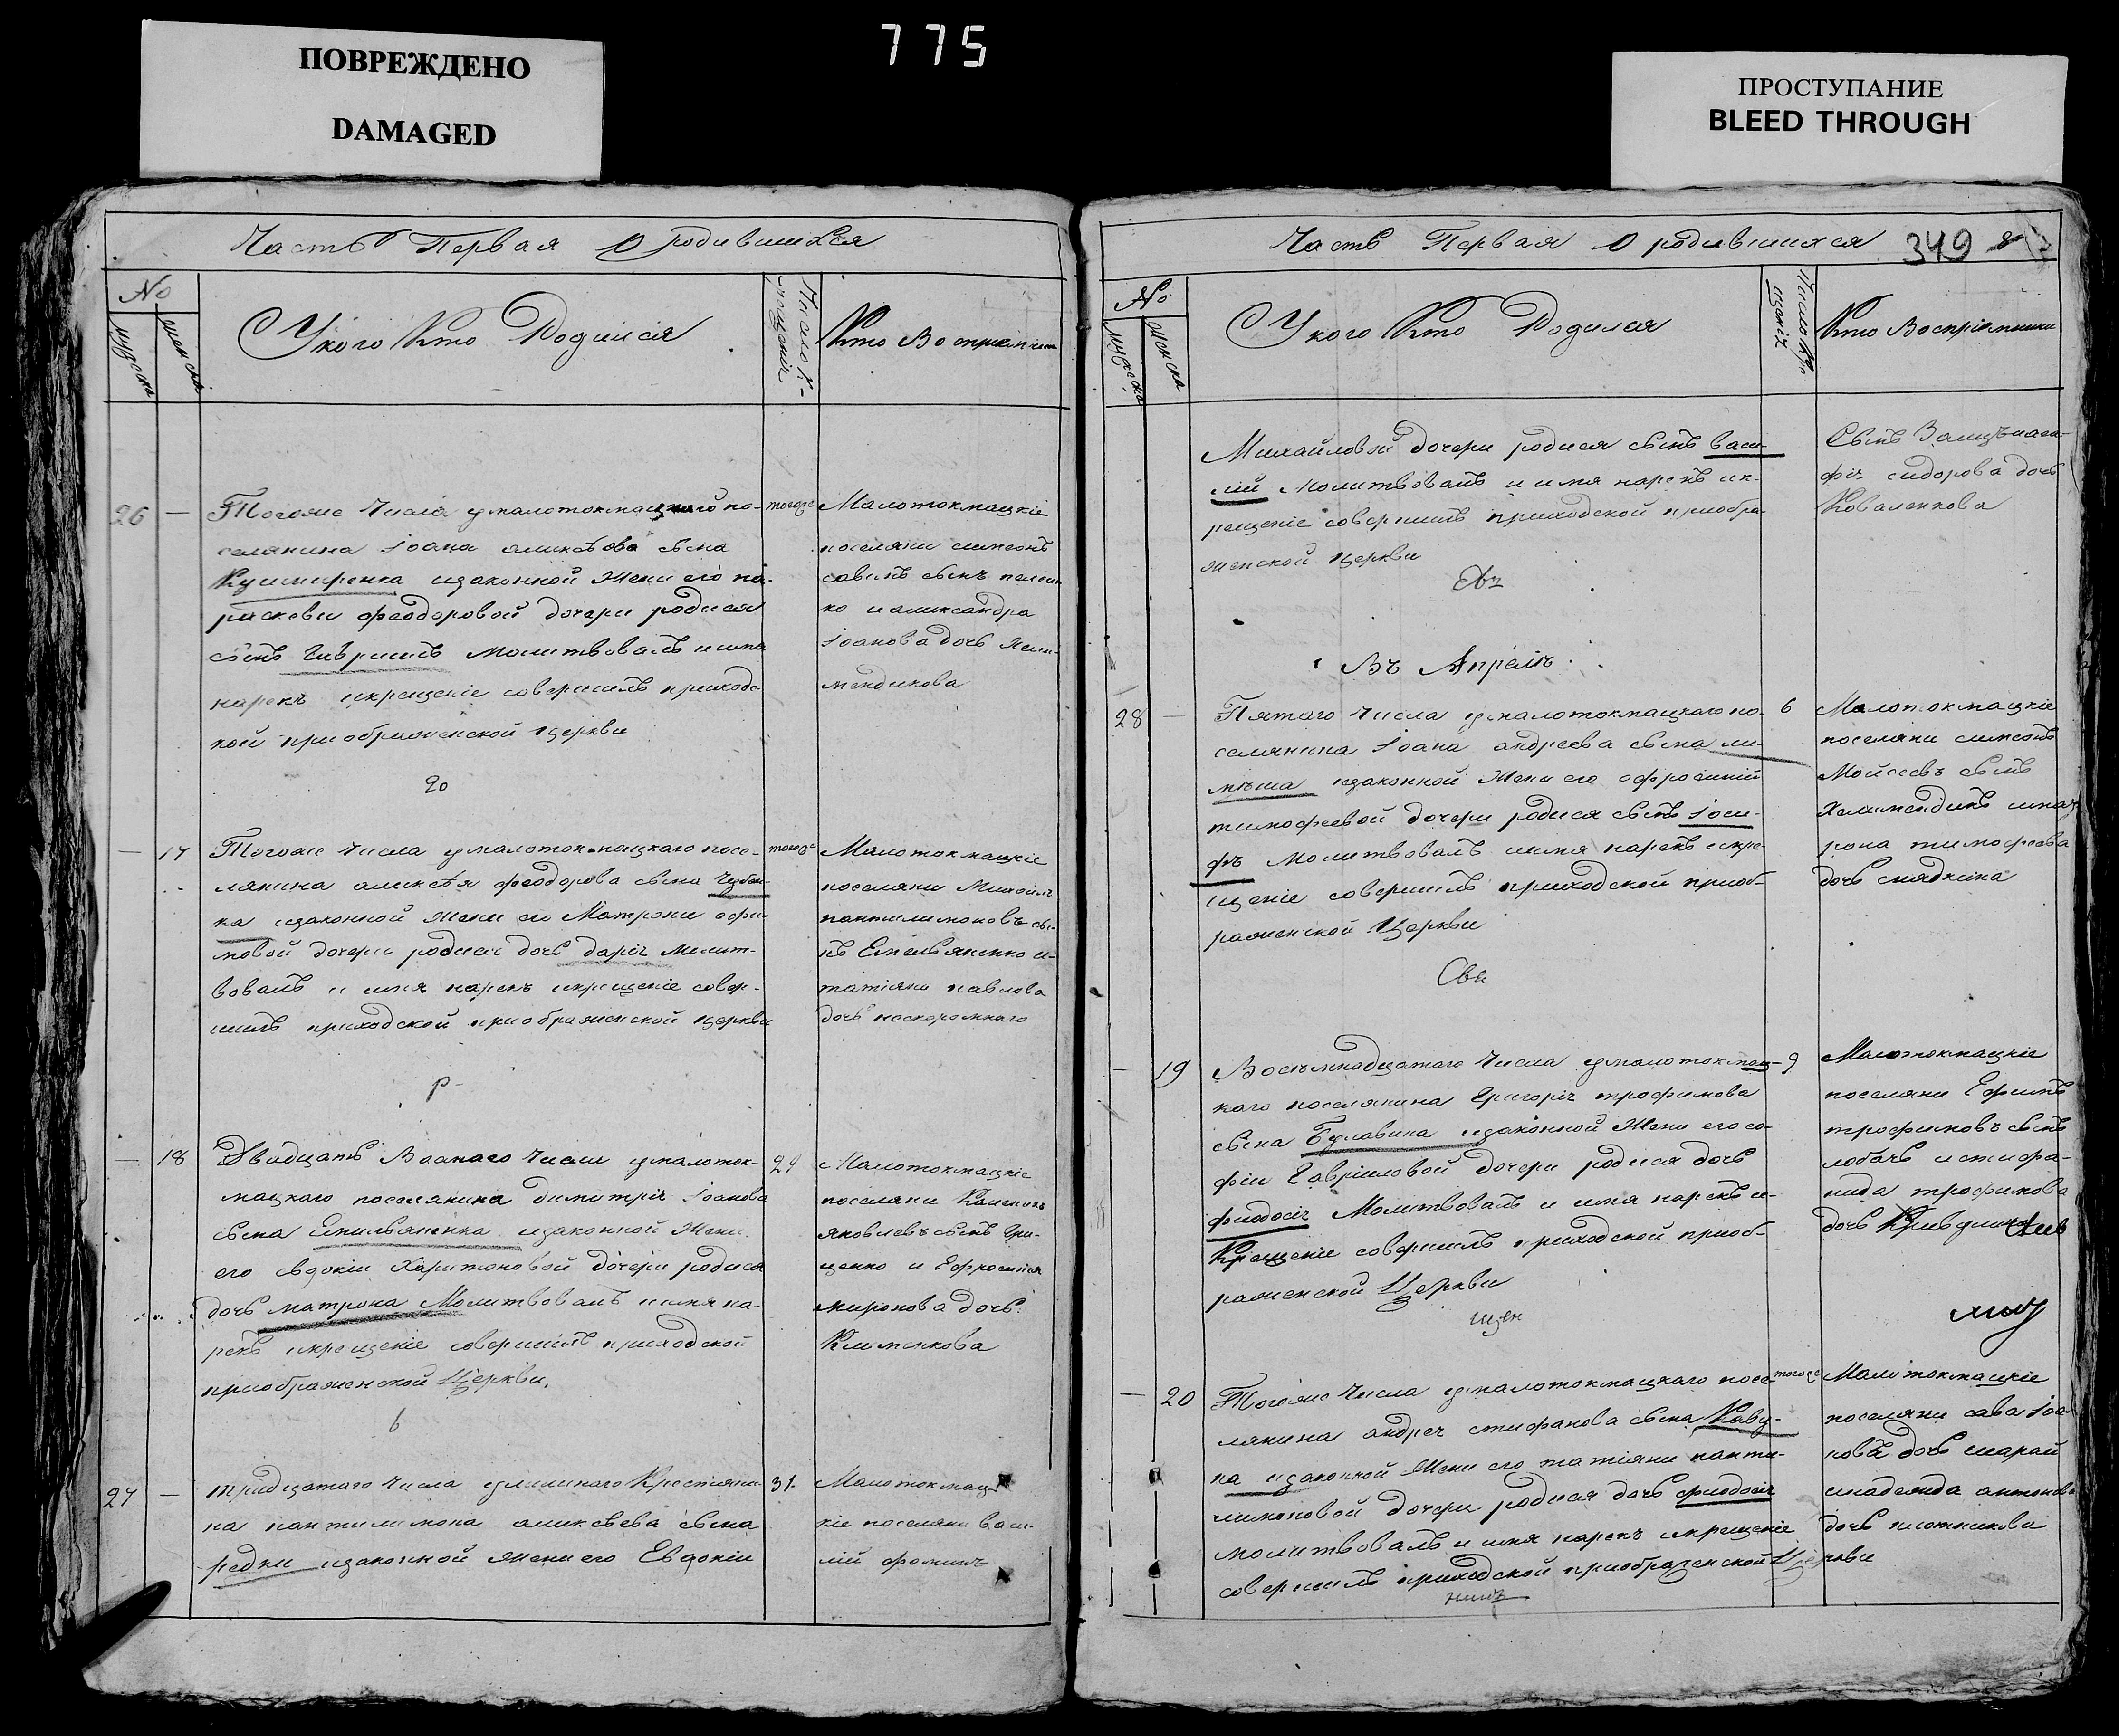 ПОВРЕЖДЕНО
DAMAGED
775
ПРОСТУПАНИЕ
BLEED THROUGH
Часть Первая О родившихся
No
мужеска
женска
У кого Кто Родился
Число Крещения
Кто Восприемники
26 —
Тогоже Числа умалотокмацкаго по-
селянина Иоана аликсѣева сына
Кушниренка изаконной Жени его па-
раскеви феодоровой дочери родися
сынъ Гавриилъ Молитвовалъ иимя
нарекъ икрещение совершилъ приходс-
кой приображенской церкви
тогоже
Малотокмацкие
поселяни симеонъ
савинъ сынъ
ко иалиександра
Иоанова дочь
20
— 17
Тогоже Числа умалотокмацкаго посе-
лянина аликсѣя феодорова сына
ка изаконной Жени его Матрони
мовой дочери родися дочь дария Молит-
вовалъ и имя нарекъ икрещение совер-
шилъ приходской приображенской церкви
тогоже
Малотокмацкие
поселяни Михаилъ
пантилимоновъ сы-
нъ Емельяненко и
татияни павлова
дочь наскоромнаго
р
— 18
Двадцать Восмаго Числа умалоток-
мацкаго поселянина димитрия Иоанова
сына Емильяненка изаконной Жени
его евдокии Харитоновой дочери родися
дочь матрона Молитвовалъ иимя на-
рекъ икрещение совершилъ приходской
приображенской Церкви.
29
Малотокмацкие
поселяни
яковлевъ сынъ Гри-
ценко и Ефросиния
миронова дочь
Клименкова
27 —
тридцатаго Числа Крестияни-
на пантилимона аликсѣева сына
редки изаконной Жени его Евдокии
31.
Малотокмац-
кие поселяни васи-
лий фоминъ
Часть Первая О родившихся 349
No
мужеска
женска
У кого Кто Родился
Число Крещения
Кто Восприемники
Михайловой дочери родися сынъ васи-
лий Молитвовалъ и имя нарекъ ик-
рещение совершилъ приходской приобра-
женской церкви
Сынъ
фия сидорова дочь
Коваленкова
Въ Апрелѣ
28 —
Пятаго Числа умалотокмацкаго по-
селянина Иоана андреева сына
изаконной Жени его ефросинии
тимофеевой дочери родися сынъ Иоси-
фъ Молитвовалъ иимя нарекъ икре-
щение совершилъ приходской приоб-
раженской Церкви
6
Малотокмацкие
поселяни симеонъ
Мойсеевъ сынъ
рона тимофеева
дочь
— 19
Восемнадцатаго Числа умалотокмац-
каго поселянина Григория трофимова
сына Булавина изаконной Жени его со-
фии Гавриловой дочери родися дочь
феодосия Молитвовалъ и имя нарекъ и
Крещение совершилъ приходской приоб-
раженской Церкви
9
Малотокмацкие
поселяни Ефимъ
трофимовъ сынъ
лобачь истифа-
нида трофимова
дочь
— 20
Тогоже Числа умалотокмацкаго посе-
лянина андрея стифанова сына Каву-
на изаконной Жени его татияни панти-
лимоновой дочери родися дочь феодосия
молитвовалъ и имя нарекъ икрещение
совершилъ приходской приображенской Церкви
тогоже
Малотокмацкие
поселяни сава Иоа-
новъ дочь
инадежда антонова
дочь плотникова